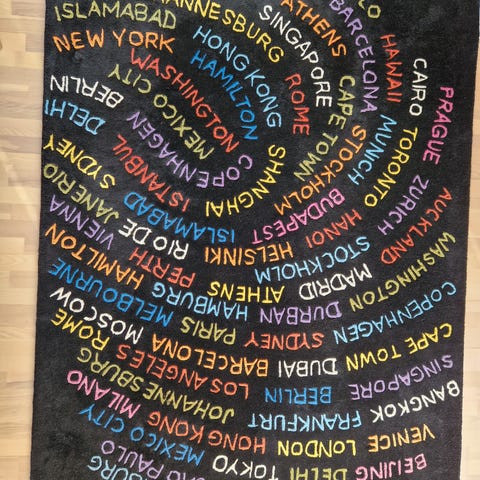 ISLAMABAD
NEW YORK
WASHINGTON
MEXICO CITY
BERLIN
DELHI
SYDNEY
HONG KONG
HAMILTON
SINGAPORE
ATHENS
BARCELONA
ROME
CAPE TOWN
STOCKHOLM
MUNICH
HAWAII
CAIRO
TORONTO
PRAGUE
ZURICH
AUCKLAND
WASHINGTON
COPENHAGEN
CAPE TOWN
SINGAPORE
BANGKOK
COPENHAGEN
ISTANBUL
SHANGHAI
BUDAPEST
ISLAMABAD
RIO DE JANERIO
VIENNA
HANOI
HELSINKI
PERTH
HAMILTON
STOCKHOLM
MADRID
ATHENS
HAMBURG
MELBOURNE
MOSCOW
DURBAN
SYDNEY
PARIS
BARCELONA
ROME
DUBAI
LOS ANGELES
JOHANNESBURG
BERLIN
MILANO
FRANKFURT
HONG KONG
MEXICO CITY
VENICE
LONDON
TOKYO
BEIJING
DELHI